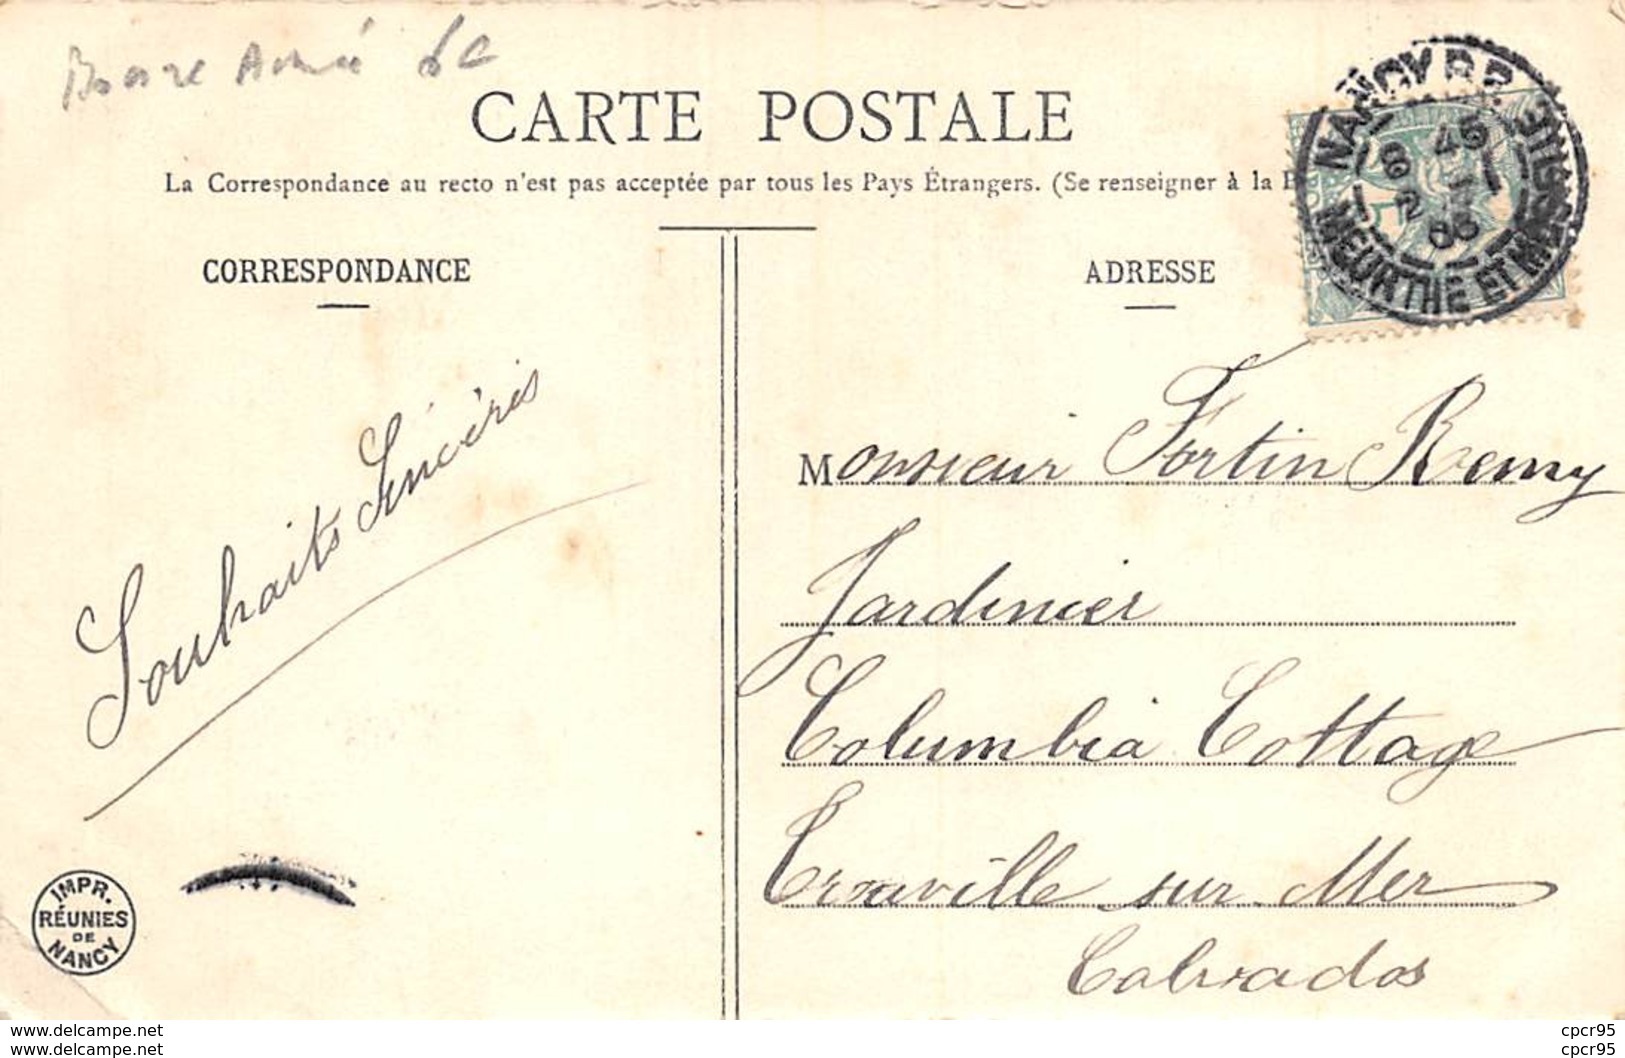 Bonne Année
CARTE POSTALE
La Correspondance au recto n'est pas acceptée par tous les Pays Étrangers. (Se renseigner à la
CORRESPONDANCE
Souhaits Sincères
ADRESSE
NANCY R.P.
MEURTHE ET MOSELLE
Monsieur Fortin Remy
Jardinier
Columbia Cottage
Trouville sur Mer
Calvados
IMPR.
RÉUNIES
DE
NANCY
www.delcampe.net
www.delcampe.net
cpcr95
cpcr95